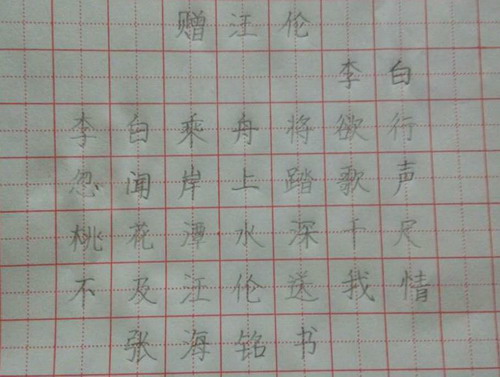 赠汪伦
李白
李白乘舟将欲行
忽闻岸上踏歌声
桃花潭水深千尺
不及汪伦送我情
张海铭书